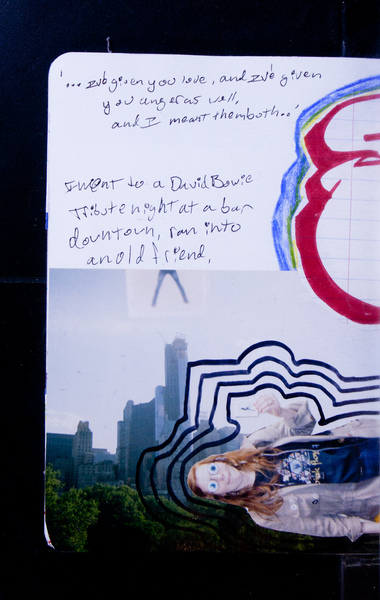 '... I've given you love, and I've given
you anger as well,
and I meant them both...'
I went to a David Bowie
Tribute night at a bar
downtown, ran into
an old friend,